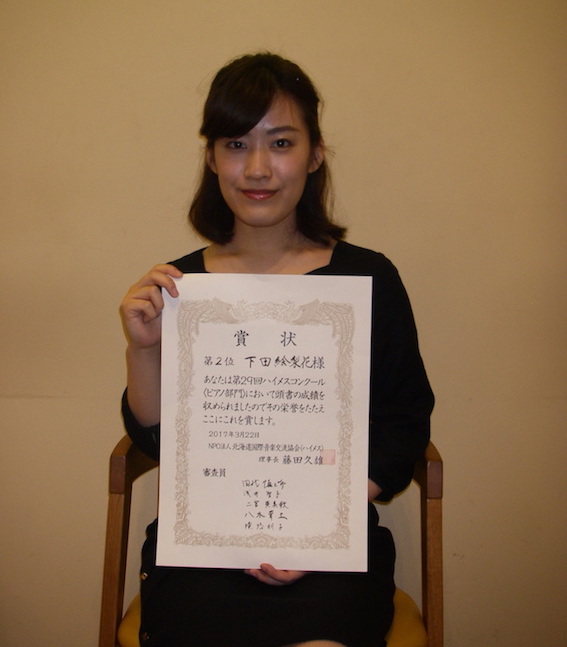 賞状
第2位 下田絵梨花様
あなたは第29回ハイメスコンクール
〈ピアノ部門〉において頭書の成績を
収められましたのでその栄誉をたたえ
ここにこれを賞します。
2017年3月22日
NPO法人北海道国際音楽交流協会(ハイメス)
理事長 藤田久雄
審査員
浅井智子
二宮英美歌
八木幸三